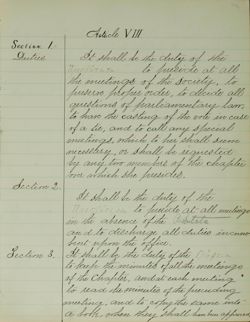 Article VIII
Section 1.
Duties
It shall be the duty of the
to preside at all
the meetings of the society, to
preserve proper order, to decide all
questions of parliamentary law,
to have the casting of the vote in case
of a tie, and to call any special
meetings, which to her shall seem
necessary, or shall be requested
by any two members of the chapter
over which she presides.
Section 2.
It shall be the duty of the
to preside at all meetings
in the absence of the
and to discharge all duties incum-
bent upon the office.
Section 3.
It shall be the duty of the
to keep the minutes of all the meetings
of the Chapter, and at each meeting
to read the minutes of the preceding
meeting, and to copy the same into
a book when they shall have been approved